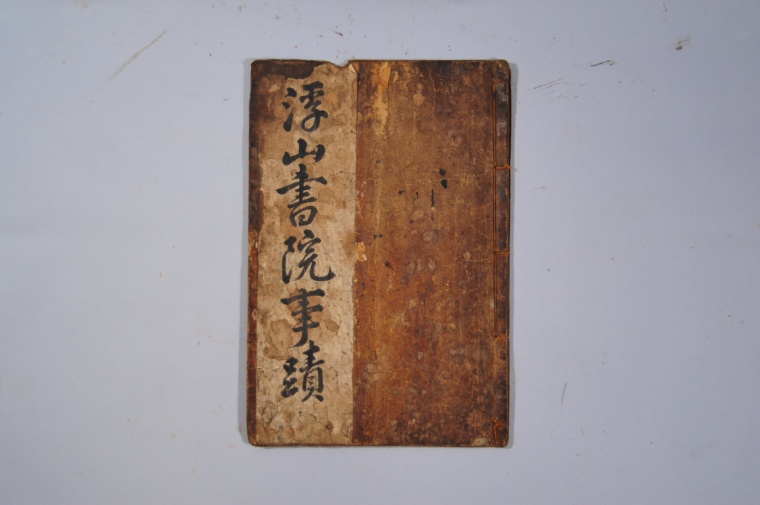 浮山書院事蹟